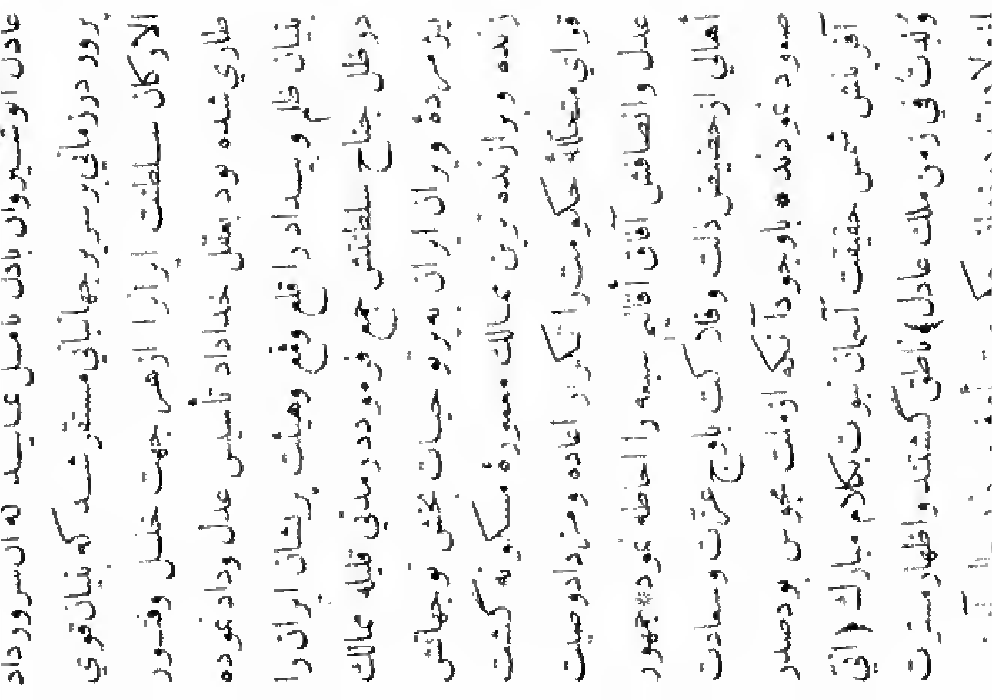 عادل انوشیروان باذل عامل عبد که آن سرور داد
پرور در زمانی بر سریر جهانبانی مستقر شد که بنیان قوي
الارکان سلطنت ایرانرا از هر جهت خلل و فتور
طاري شده بود بعقل خداداد تأسیس عدل و داد نموده
بنیان ظلم و بیداد را قلع و قمع و هیئت پریشان ایران را
در ظل جناح سلطنتش جمع فرمود در مدتی قلیله ممالك
پژمردۀ ویران ایران بپرتو حیات بخش توجهاتش
زنده و برازنده ترین ممالك معمورۀ مسکونه گشت
قواي متحللۀ حکومت را تکرار اعاده و مزداد وصیت
عدل و انصافش آفاق أقالیم سبعه را احاطه نمود * جمهور
أهالي از حضیض ذلت و فلاکت باوج عزّت و سعادت
صعود نمودند * باوجود آنکه از ملت مجوس بود صدر
آفرینش شمس حقیقت آسمان نبوت بکلام مبارك (انّی
وُلدتُ في زمن ملك عادل) ناطق گشتند و اظهار مسرت